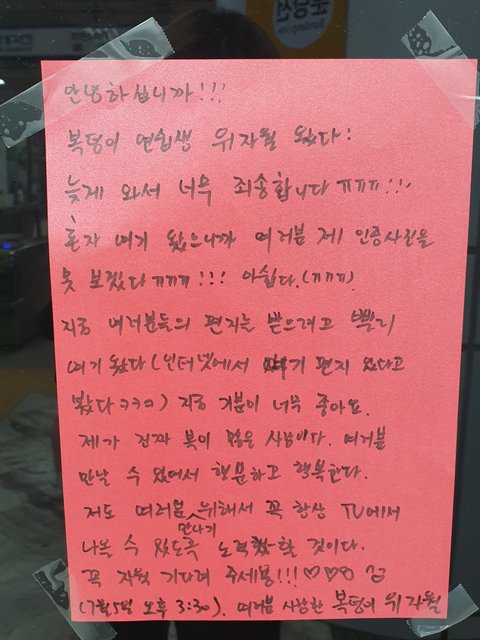 안녕하십니까!!!
복덩이 연습생 위자월 왔다:
늦게 와서 너무 죄송합니다 ㅠㅠㅠ!!!
혼자 여기 왔으니까 여러붐 제 인증사진을
못 보겠다 ㅠㅠㅠ!!! 아쉽다.(ㅠㅠㅠ).
지금 여러분들의 편지는 받으려고 빨리
여기 왔다 (인터넷에서 여기 편지 있다고
봤다ㅋㅋㅋ) 지금 기붐이 너무 좋아요.
제가 진짜 복이 많은 사람이다. 여러붐
만날 수 있어서 행운하고 행복한다.
저도 여러붐 위해서 꼭 항상 TV에서
만나기
나올 수 있도록 노력할 것이다.
꼭 자월 기다려 주세용!!!♡♡♡
(7월5일 오후 3:30). 여러붐 사랑한 복덩이 위자월